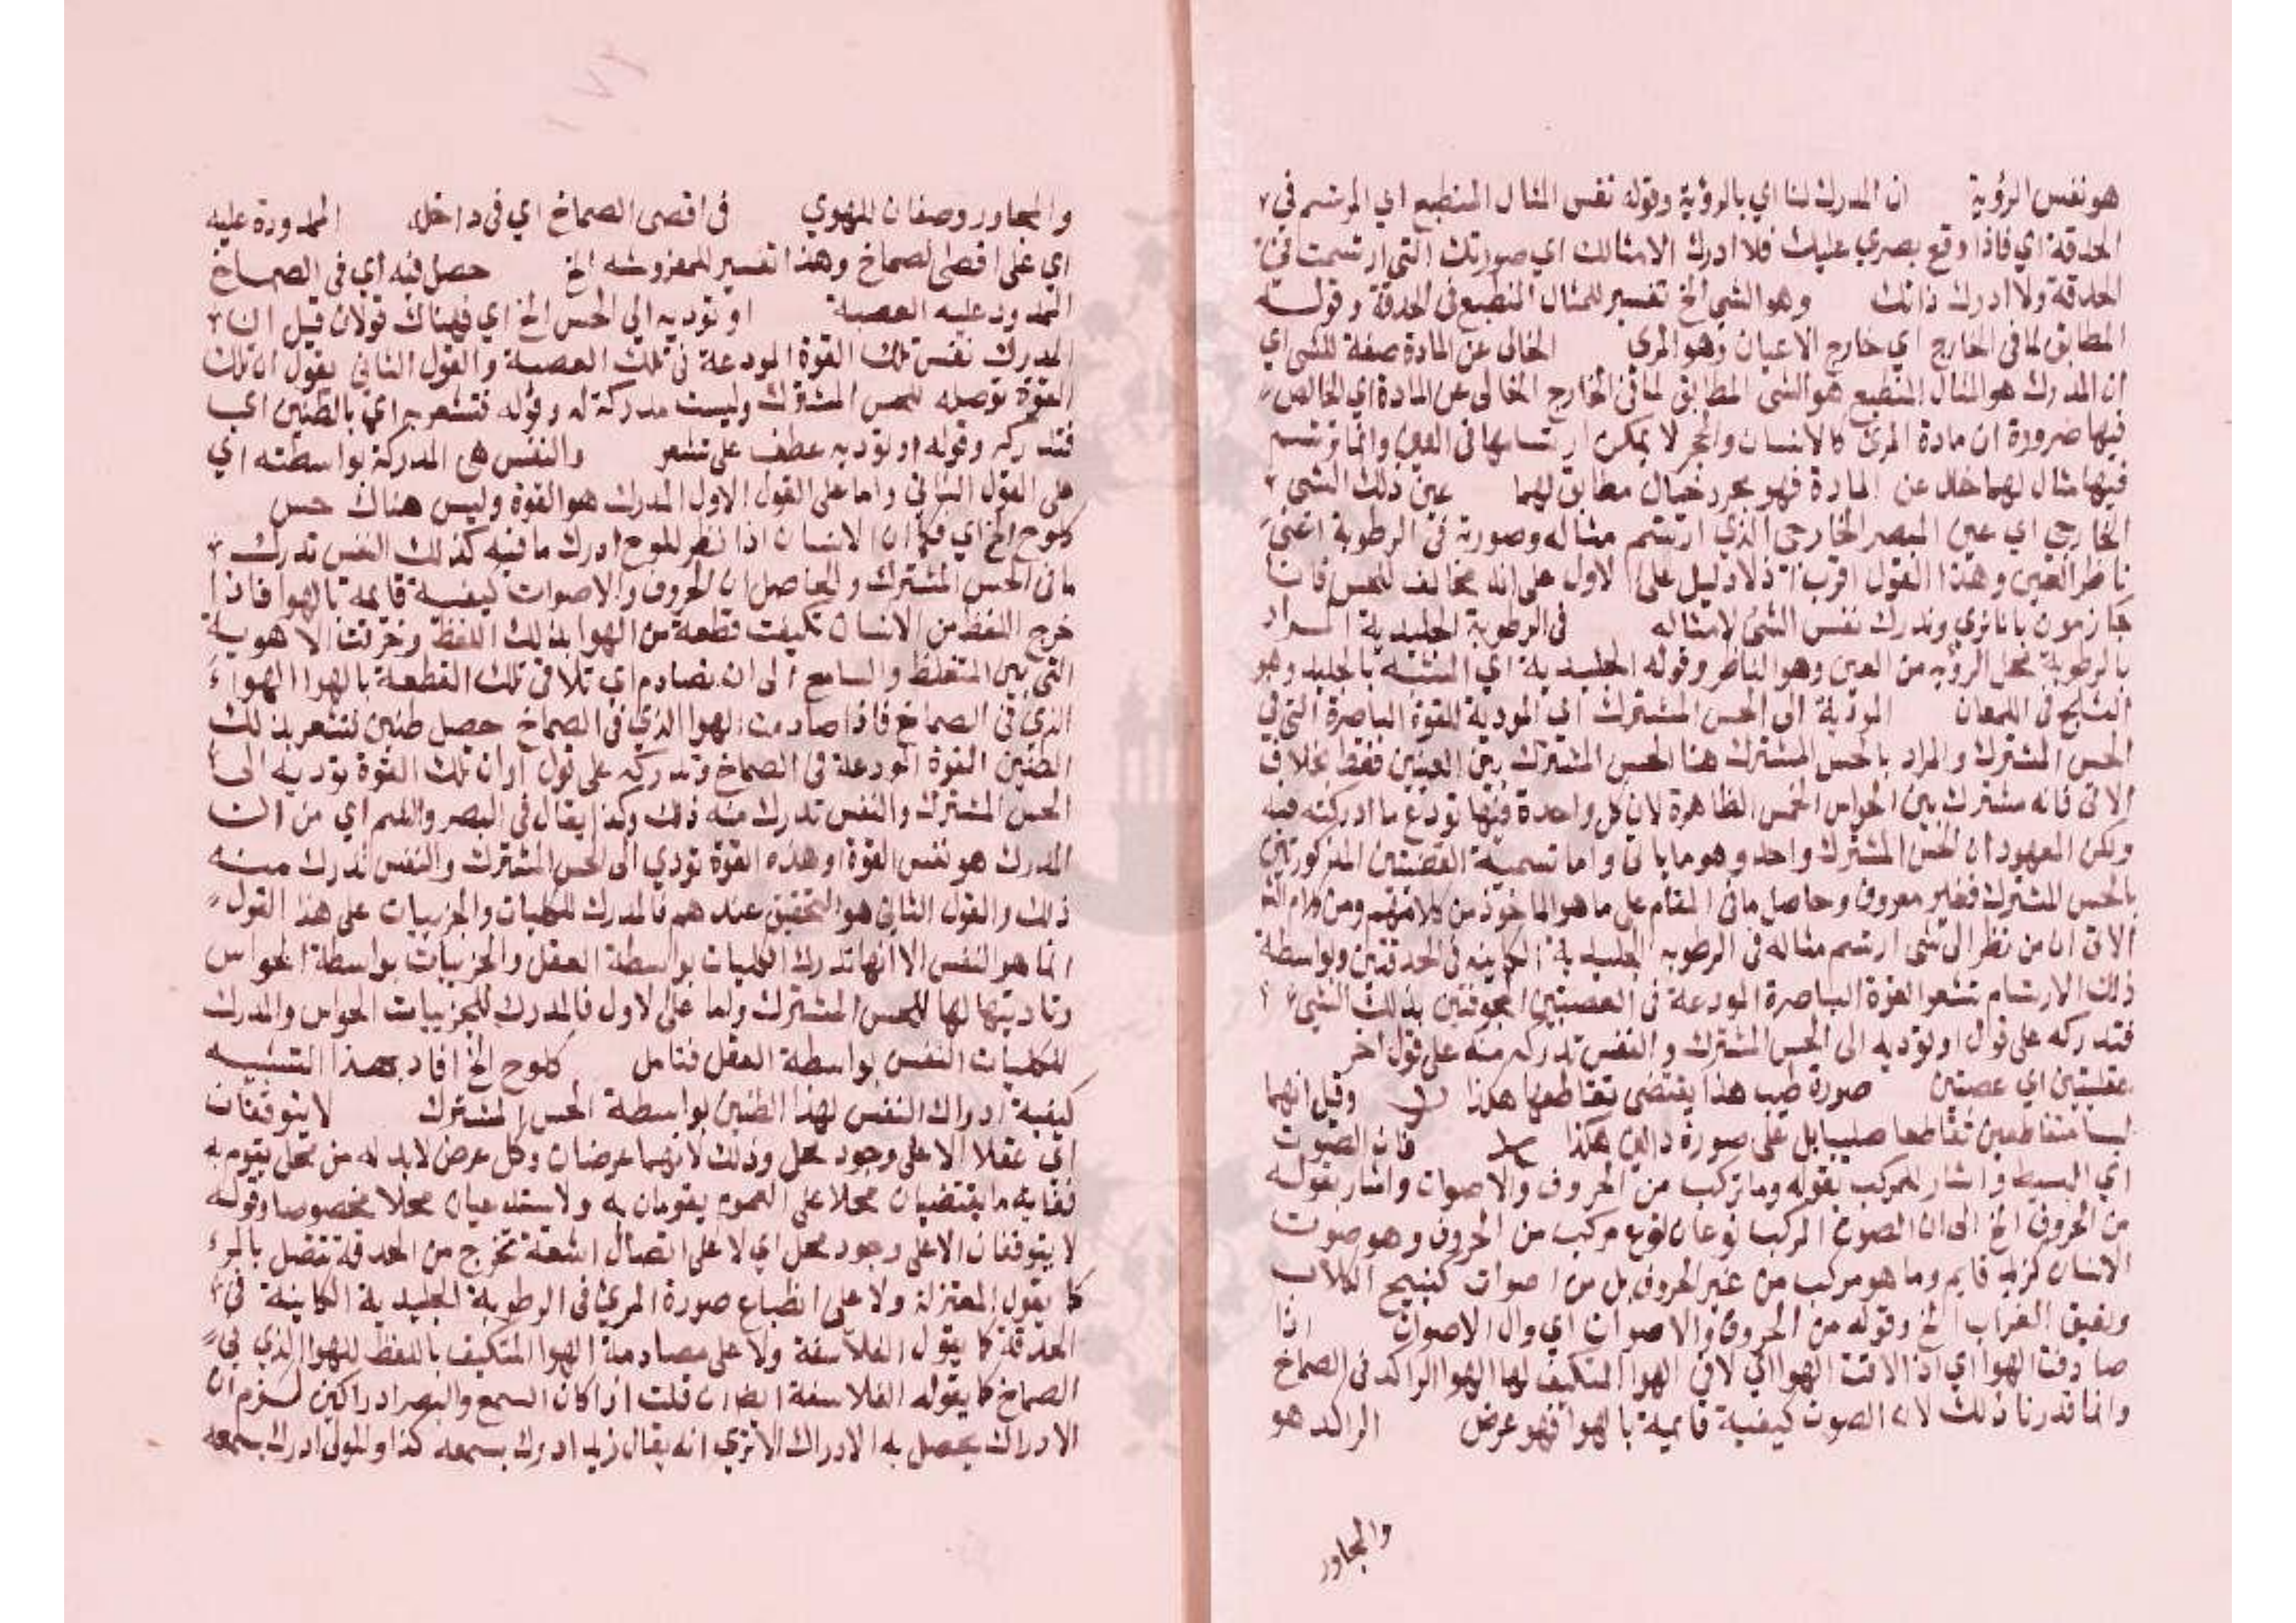 هو نفس الرؤية ان المدرك لنا اي بالرؤية وقوله نفس المثال المنطبع اي المرتسم في
الحدقة اي فاذا وقع بصري عليك فلا ادرك الا مثالك اي صورتك التي ارتسمت في
الحدقة ولا ادرك ذاتك وهو الشي الخ تفسير للمثال المنطبع في الحدقة وقوله
المطابق لما في الخارج اي خارج الاعيان وهو المرئ الخالى عن المادة صفة للشى اي
ان المدرك هو المثال المنطبع هو الشى المطابق لما في الخارج الخالى عن المادة اي الخالص
فيها ضرورة ان مادة المرئ كالانسان والحجر لا يمكن ارتسامها في العين وانما يرتسم
فيها مثال لهما خال عن المادة فهو مجرد خيال مطابق لهما عين ذلك الشى
الخارجي اي عين المبصر الخارجي الذي ارتسم مثاله وصورته في الرطوبة اعنى
ناظر العين وهذا القول اقرب اذ لا دليل على الاول على انه مخالف للحس فاننا
جازمون باننا نري وندرك نفس الشئ لا مثاله في الرطوبة الجليدية المراد
بالرطوبة محل الرؤية من العين وهو الناظر وقوله الجليدية اي المشبه بالجليد وهو
الثلج في اللمعان المودية الى الحس المشترك اي المودية للقوة الباصرة التي في
الحس المشترك والمراد بالحس المشترك هنا الحس المشترك بين العينين فقط بخلاف
الاتى فانه مشترك بين الحواس الخمس الظاهرة لان كل واحدة فيها تودع ما ادركته فيه
ولكن المعهود ان الحس المشترك واحد وهو ما ياتى واما تسمية العصبتين المذكورتين
بالحس المشترك فغير معروف وحاصل ما في المقام على ما هو الماخوذ من كلامهم ومن كلام
الاتى ان من نظر الى شى ارتسم مثاله في الرطوبة الجليدية الكاينه في الحدقتين وبواسطة
ذلك الارتسام تشعر القوة الباصرة المودعة في العصبتين المجوفتين بذلك الشئ
فتدركه على قول او توديه الى الحس المشترك والنفس تدركه منه على قول اخر
عصبتين اي عصبتين صورة صليب هذا يقتضى تقاطعها هكذا وقيل انهما
ليسا متقاطعين تقاطعا صليبيا بل على صورة دالين هكذا فان الصوت
اي البسيط واشار للمركب بقوله وما تركب من الحروف والاصوات واشار بقوله
من الحروف الخ الى ان الصوت المركب نوعان نوع مركب من الحروف وهو صوت
الانسان كزيد قايم وما هو مركب من غير الحروف بل من اصوات كنبيح الكلاب
ونعيق الغراب الخ وقوله من الحروف والاصوات اي وال الاصوات اذا
صادفت الهوا اي اذا لاقت الهوا اي لاقى الهوا المتكيف لها الهوا الراكد في الصماخ
وانما قدرنا ذلك لان الصوت كيفية قايمة بالهوا فهو عرض الراكد هو
والمجاور
والمجاور وصفان للهوي في اقصى الصماخ اي في داخله الممدودة عليه
اي على اقصى الصماخ وهذا تفسير للمفروشه الخ حصل فيه اي في الصماخ
الممدود عليه العصبة او توديه الى الحس الخ اي فهناك قولان قيل ان
المدرك نفس تلك القوة المودعة في تلك العصبة والقول الثاني يقول ان تلك
القوة توصيله للحس المشترك وليست مدركة له وقوله فتشعر به اي بالطنين اي
فتدركه وقوله او توديه عطف على تشعر والنفس هي المدركة بواسطته اي
على القول الثاني واما على القول الاول المدرك هو القوة وليس هناك حس
كلوح الخ اي فكما ان الانسان اذا نظر للوح ادرك ما فيه كذلك النفس تدرك
ما في الحس المشترك والحاصل ان الحروف والاصوات كيفية قايمة بالهوا فاذا
خرج اللفظ من الانسان تكيفت قطعة من الهوا بذلك اللفظ وخرقت الاهوية
التي بين المتلفظ والسامع الى ان تصادم اي تلاقى تلك القطعة بالهوا الهواء
الذي في الصماخ فاذا صادمت الهوا الذي في الصماخ حصل طنين فتشعر بذلك
الطنين القوة المودعة في الصماخ وتدركه على قول او ان تلك القوة توديه الى
الحس المشترك والنفس تدرك منه ذلك وكذا يقال في البصر واللمم اي من ان
المدرك هو نفس القوة او هذه القوة تودي الى الحس المشترك والنفس تدرك منه
ذلك والقول الثاني هو التحقيق عندهم فالمدرك للكليات والجزييات على هذا القول
انما هو النفس الا انها تدرك الكليات بواسطة العقل والجزييات بواسطة الحواس
وتاديتها لها للحس المشترك واما على الاول فالمدرك للجزييات الحواس والمدرك
للكليات النفس بواسطة العقل فتامل كلوح الخ افاد بهذا التشبيه
كيفية ادراك النفس لهذا الطنين بواسطة الحس المشترك لا يتوقفان
اي عقلا الا على وجود محل وذلك لانهما عرضان وكل عرض لابد له من محل يقوم به
فغاية ما يقتضيان محلا على العموم يقومان به ولا يستدعيان محلا مخصوصا وقوله
لا يتوقفان الا على وجود محل اي لا على اتصال اشعة تخرج من الحدقة تتصل بالمرئ
كما يقول المعتزلة ولا على انطباع صورة المرئ في الرطوبة الجليدية الكاينة في
الحدقة كما يقول الفلاسفة ولا على مصادمة الهوا المتكيف باللفظ للهوا الذي في
الصماخ كما يقوله الفلاسفة ايضا ان قلت اذا كان السمع والبصر ادراكين لزم ان
الادراك يحصل به الادراك الا تري انه يقال زيد ادرك بسمعه كذا والمولى ادرك بسمعه